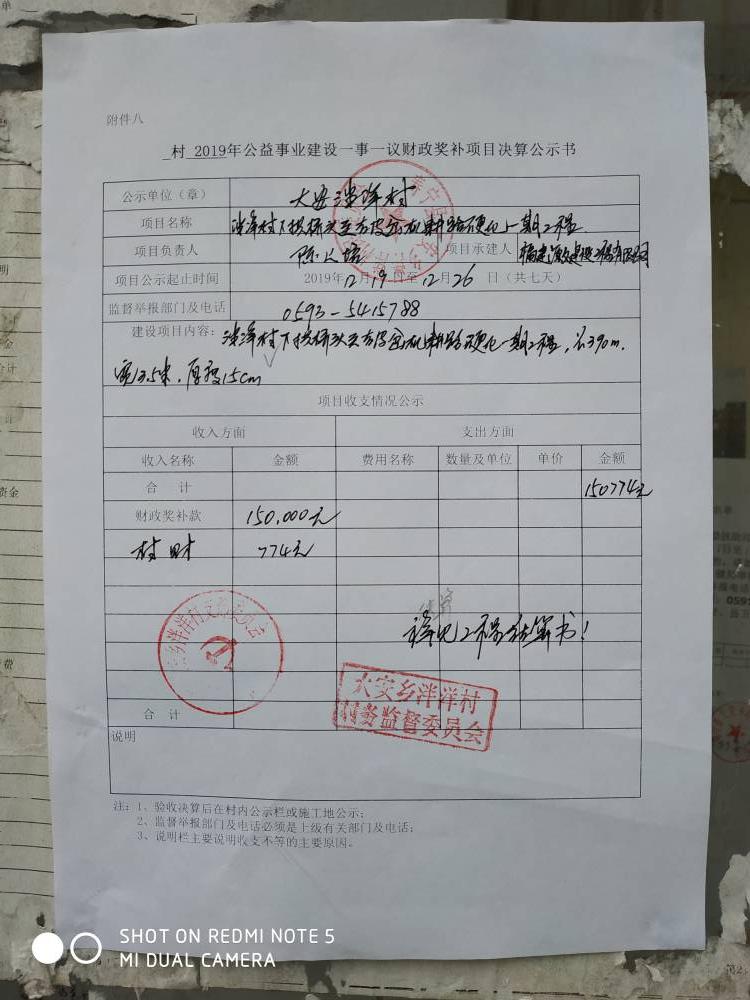 附件八
村 2019年公益事业建设一事一议财政奖补项目决算公示书
公示单位（章） 大安泮洋村
项目名称 泮洋村下
项目负责人 陈 项目承建人 福建 有限公司
项目公示起止时间 2019年12月19日至12月26日（共七天）
监督举报部门及电话 0593-5415788
建设项目内容：泮洋村下 硬化一期工程，长390m.
宽3.5米，厚度15cm
项目收支情况公示
收入方面 支出方面
收入名称 金额 费用名称 数量及单位 单价 金额
合 计 150774元
财政奖补款 150,000元
村财 774元
详见工程结算书！
乡泮洋村 委员会
大安乡泮洋村
村务监督委员会
合计
说明
注：1、验收决算后在村内公示栏或施工地公示；
2、监督举报部门及电话必须是上级有关部门及电话；
3、说明栏主要说明收支不等的主要原因。
SHOT ON REDMI NOTE 5
MI DUAL CAMERA